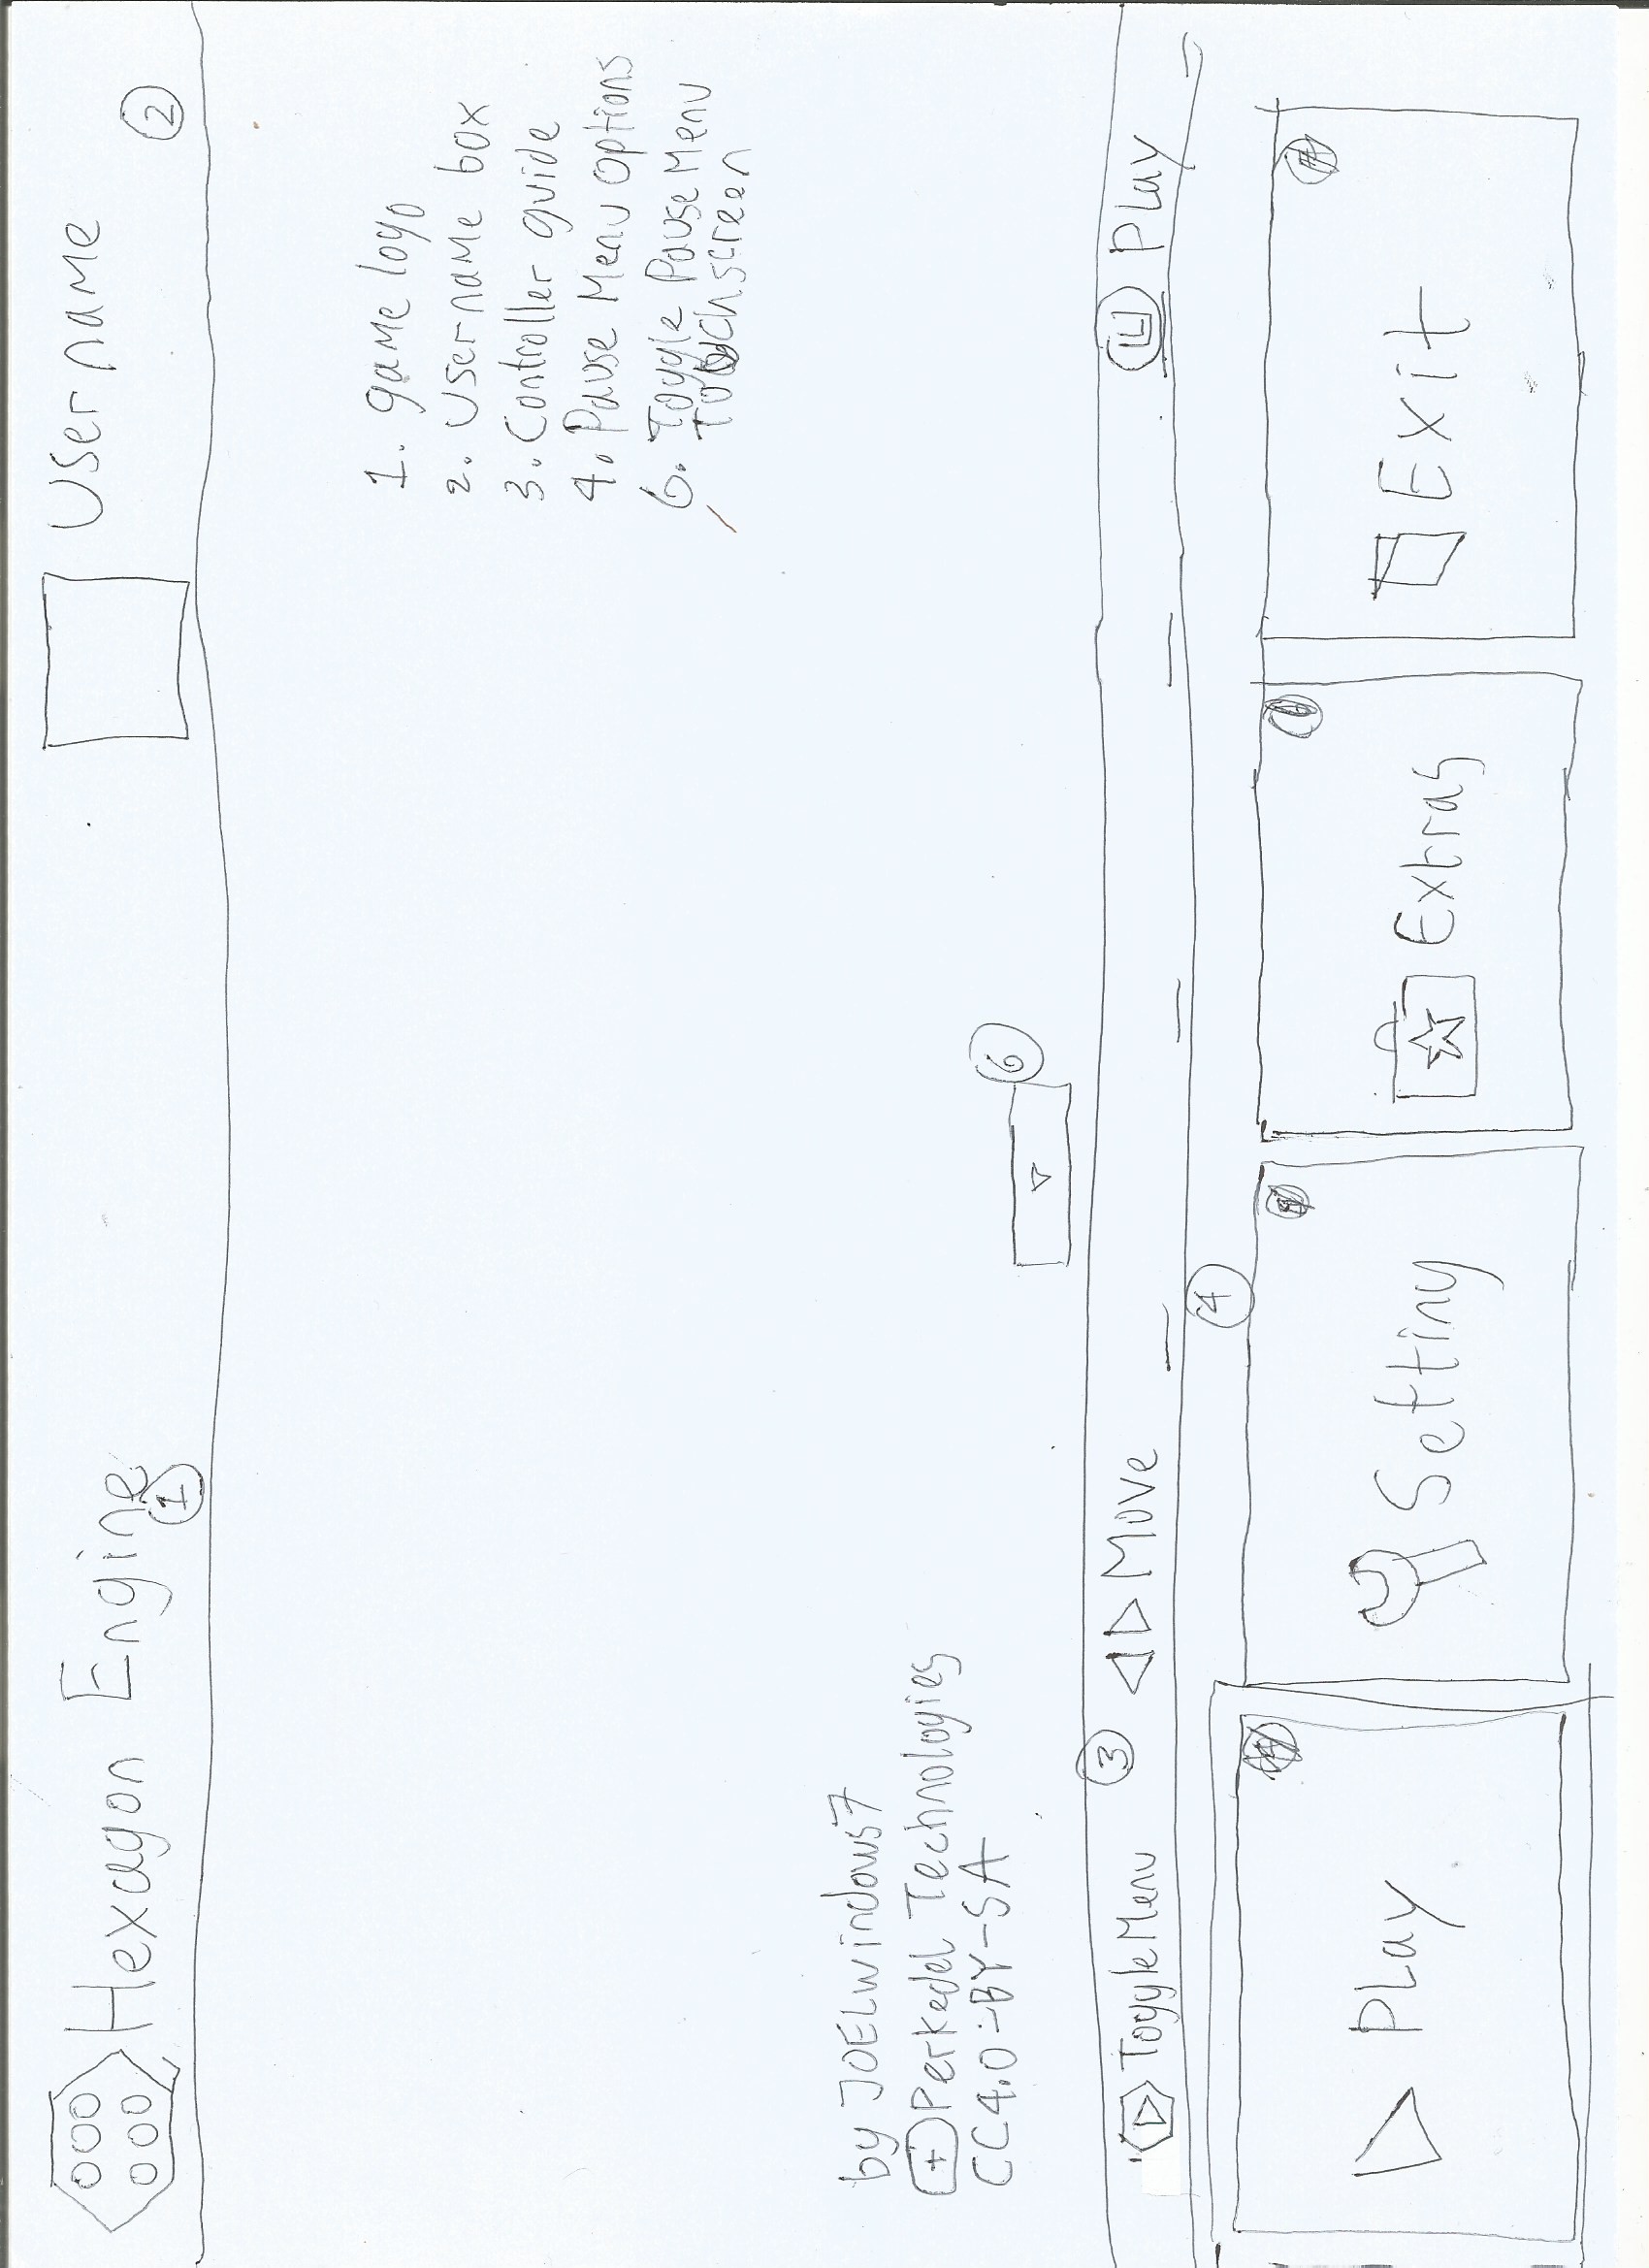 Hexagon Engine
1
Username
2
1. game logo
2. Username box
3. Controller guide
4. Pause Menu Options
6. Toggle Pause Menu
Touchscreen
by JOELwindows7
+ Perkedel Technologies
CC4.0-BY-SA
6
3
Toggle Menu
Move
Play
4
Play
Setting
Extras
Exit